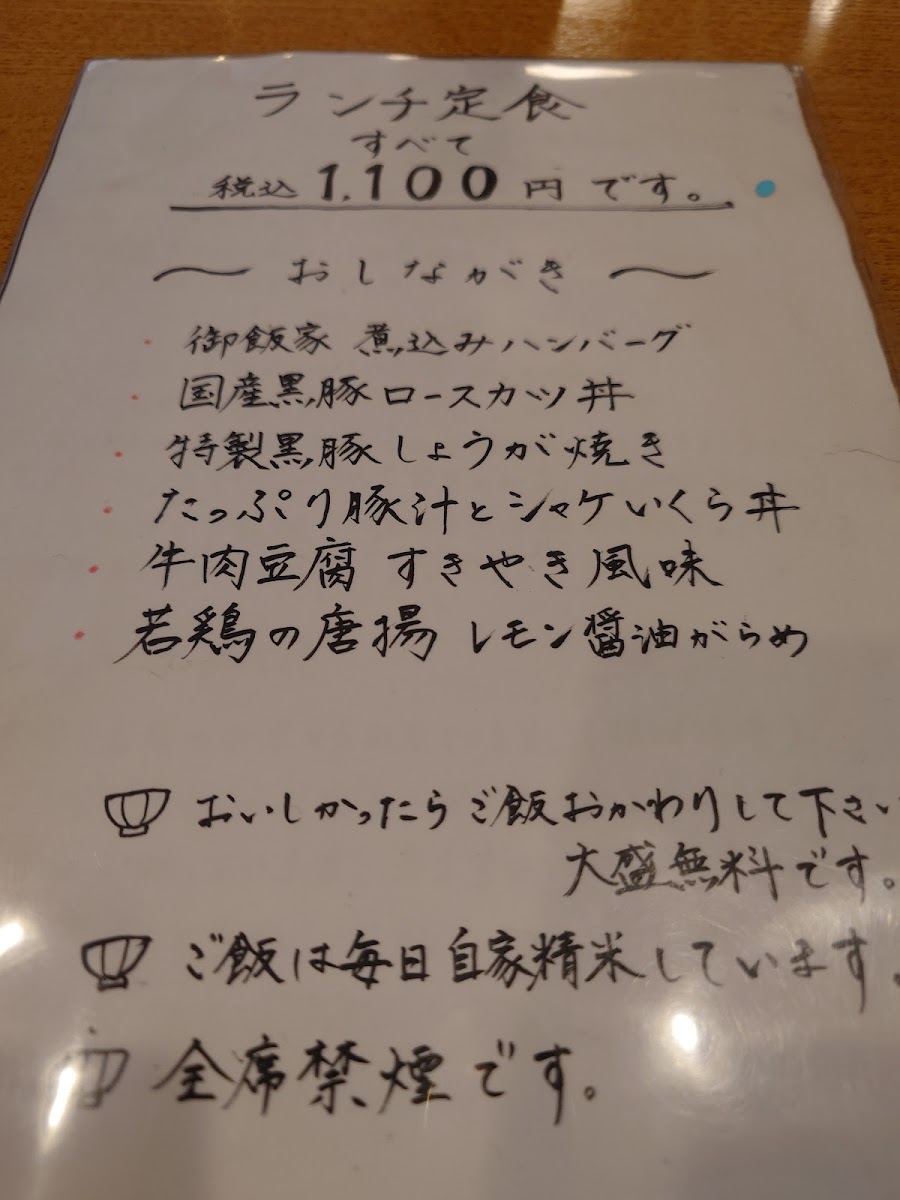 ランチ定食
すべて
税込 1,100円です。
〜 おしながき 〜
・御飯家 煮込みハンバーグ
・国産黒豚ロースカツ丼
・特製黒豚しょうが焼き
・たっぷり豚汁とシャケいくら丼
・牛肉豆腐 すきやき風味
・若鶏の唐揚 レモン醤油がらめ
おいしかったらご飯おかわりして下さい
大盛無料です。
ご飯は毎日自家精米しています。
全席禁煙です。